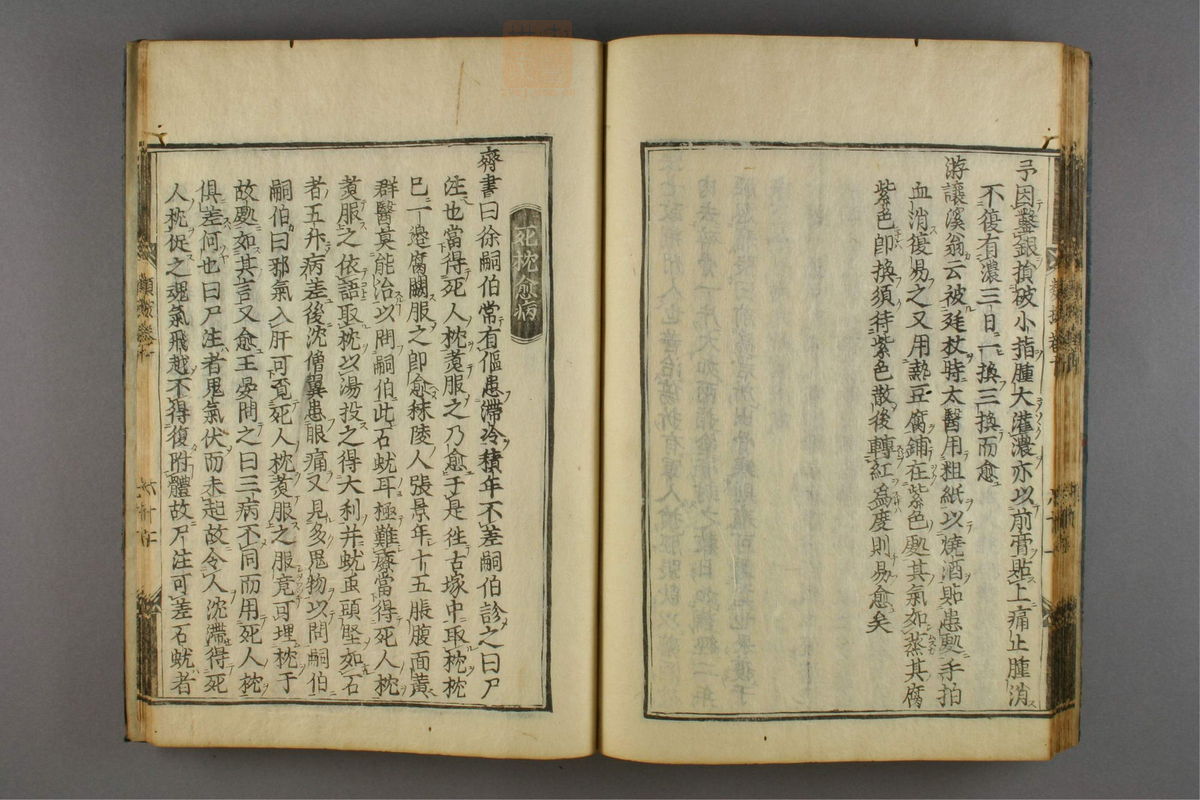 予因鑿銀損破小指腫大灌濃亦以前膏貼上痛止腫消
不復有濃三日一換三換而愈
游讓溪翁云被廷杖時太醫用粗紙以燒酒貼患處手拍
血消復易之又用熱豆腐鋪在紫色處其氣如蒸其腐
紫色即換須待紫色散後轉紅為度則易愈矣
死枕愈病
齊書曰徐嗣伯常有傴患滯冷積年不差嗣伯診之曰尸
注也當得死人枕煑服之乃愈于是徃古塚中取枕枕
已一邉腐闕服之即愈秣陵人張景年十五脹腹面黃
群醫莫能治以問嗣伯此石蚘耳極難療當得死人枕
煑服之依語取枕以湯投之得大利并蚘䖝頭堅如石
者五升病差後沈僧翼患眼痛又見多鬼物以問嗣伯
嗣伯曰邪氣入肝可覓死人枕煑服之服竟可埋枕于
故處如其言又愈王晏問之曰三病不同而用死人枕
俱差何也曰尸注者鬼氣伏而未起故令人沈滯得死
人枕促之魂氣飛越不得復附體故尸注可差石蚘者